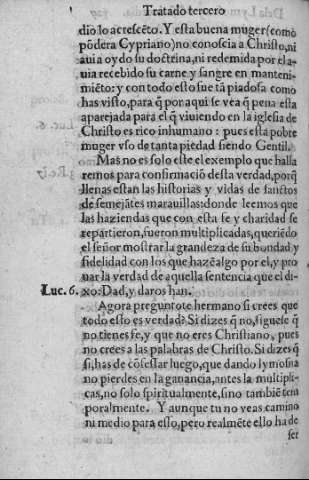 Tratado tercero
dio lo acrescẽto. Y esta buena muger (como
põdera Cypriano) no conoscia a Christo, ni
auia oydo su doctrina, ni redemida por el a-
uia recebido su carne y sangre en manteni-
miẽto: y con todo esto fue tã piadosa como
has visto, para q̃ por aqui se vea q̃ pena esta
aparejada para el q̃ viuiendo en la iglesia de
Christo es rico inhumano: pues esta pobre
muger vso de tanta piedad siendo Gentil.
Mas no es solo este el exemplo que halla
remos para confirmaciõ desta verdad, porq̃
llenas estan las historias y vidas de sanctos
de semejãtes marauillas: donde leemos que
las haziendas que con esta fe y charidad se
repartieron, fueron multiplicadas, queriẽdo
el señor mostrar la grandeza de su bondad y
fidelidad con los que hazẽ algo por el, y pro
uar la verdad de aquella sentencia que el di-
Luc. 6. xo: Dad, y daros han.
Agora pregunto te hermano si crees que
todo esto es verdad? Si dizes q̃ no, siguese q̃
no tienes fe, y que no eres Christiano, pues
no crees a las palabras de Christo. Si dizes q̃
si, has de cõfessar luego, que dando lymosna
no pierdes en la ganancia, antes la multipli-
cas, no solo spiritualmente, sino tambiẽ tem
poralmente. Y aunque tu no veas camino
ni medio para esso, pero realmẽte ello ha de
ser